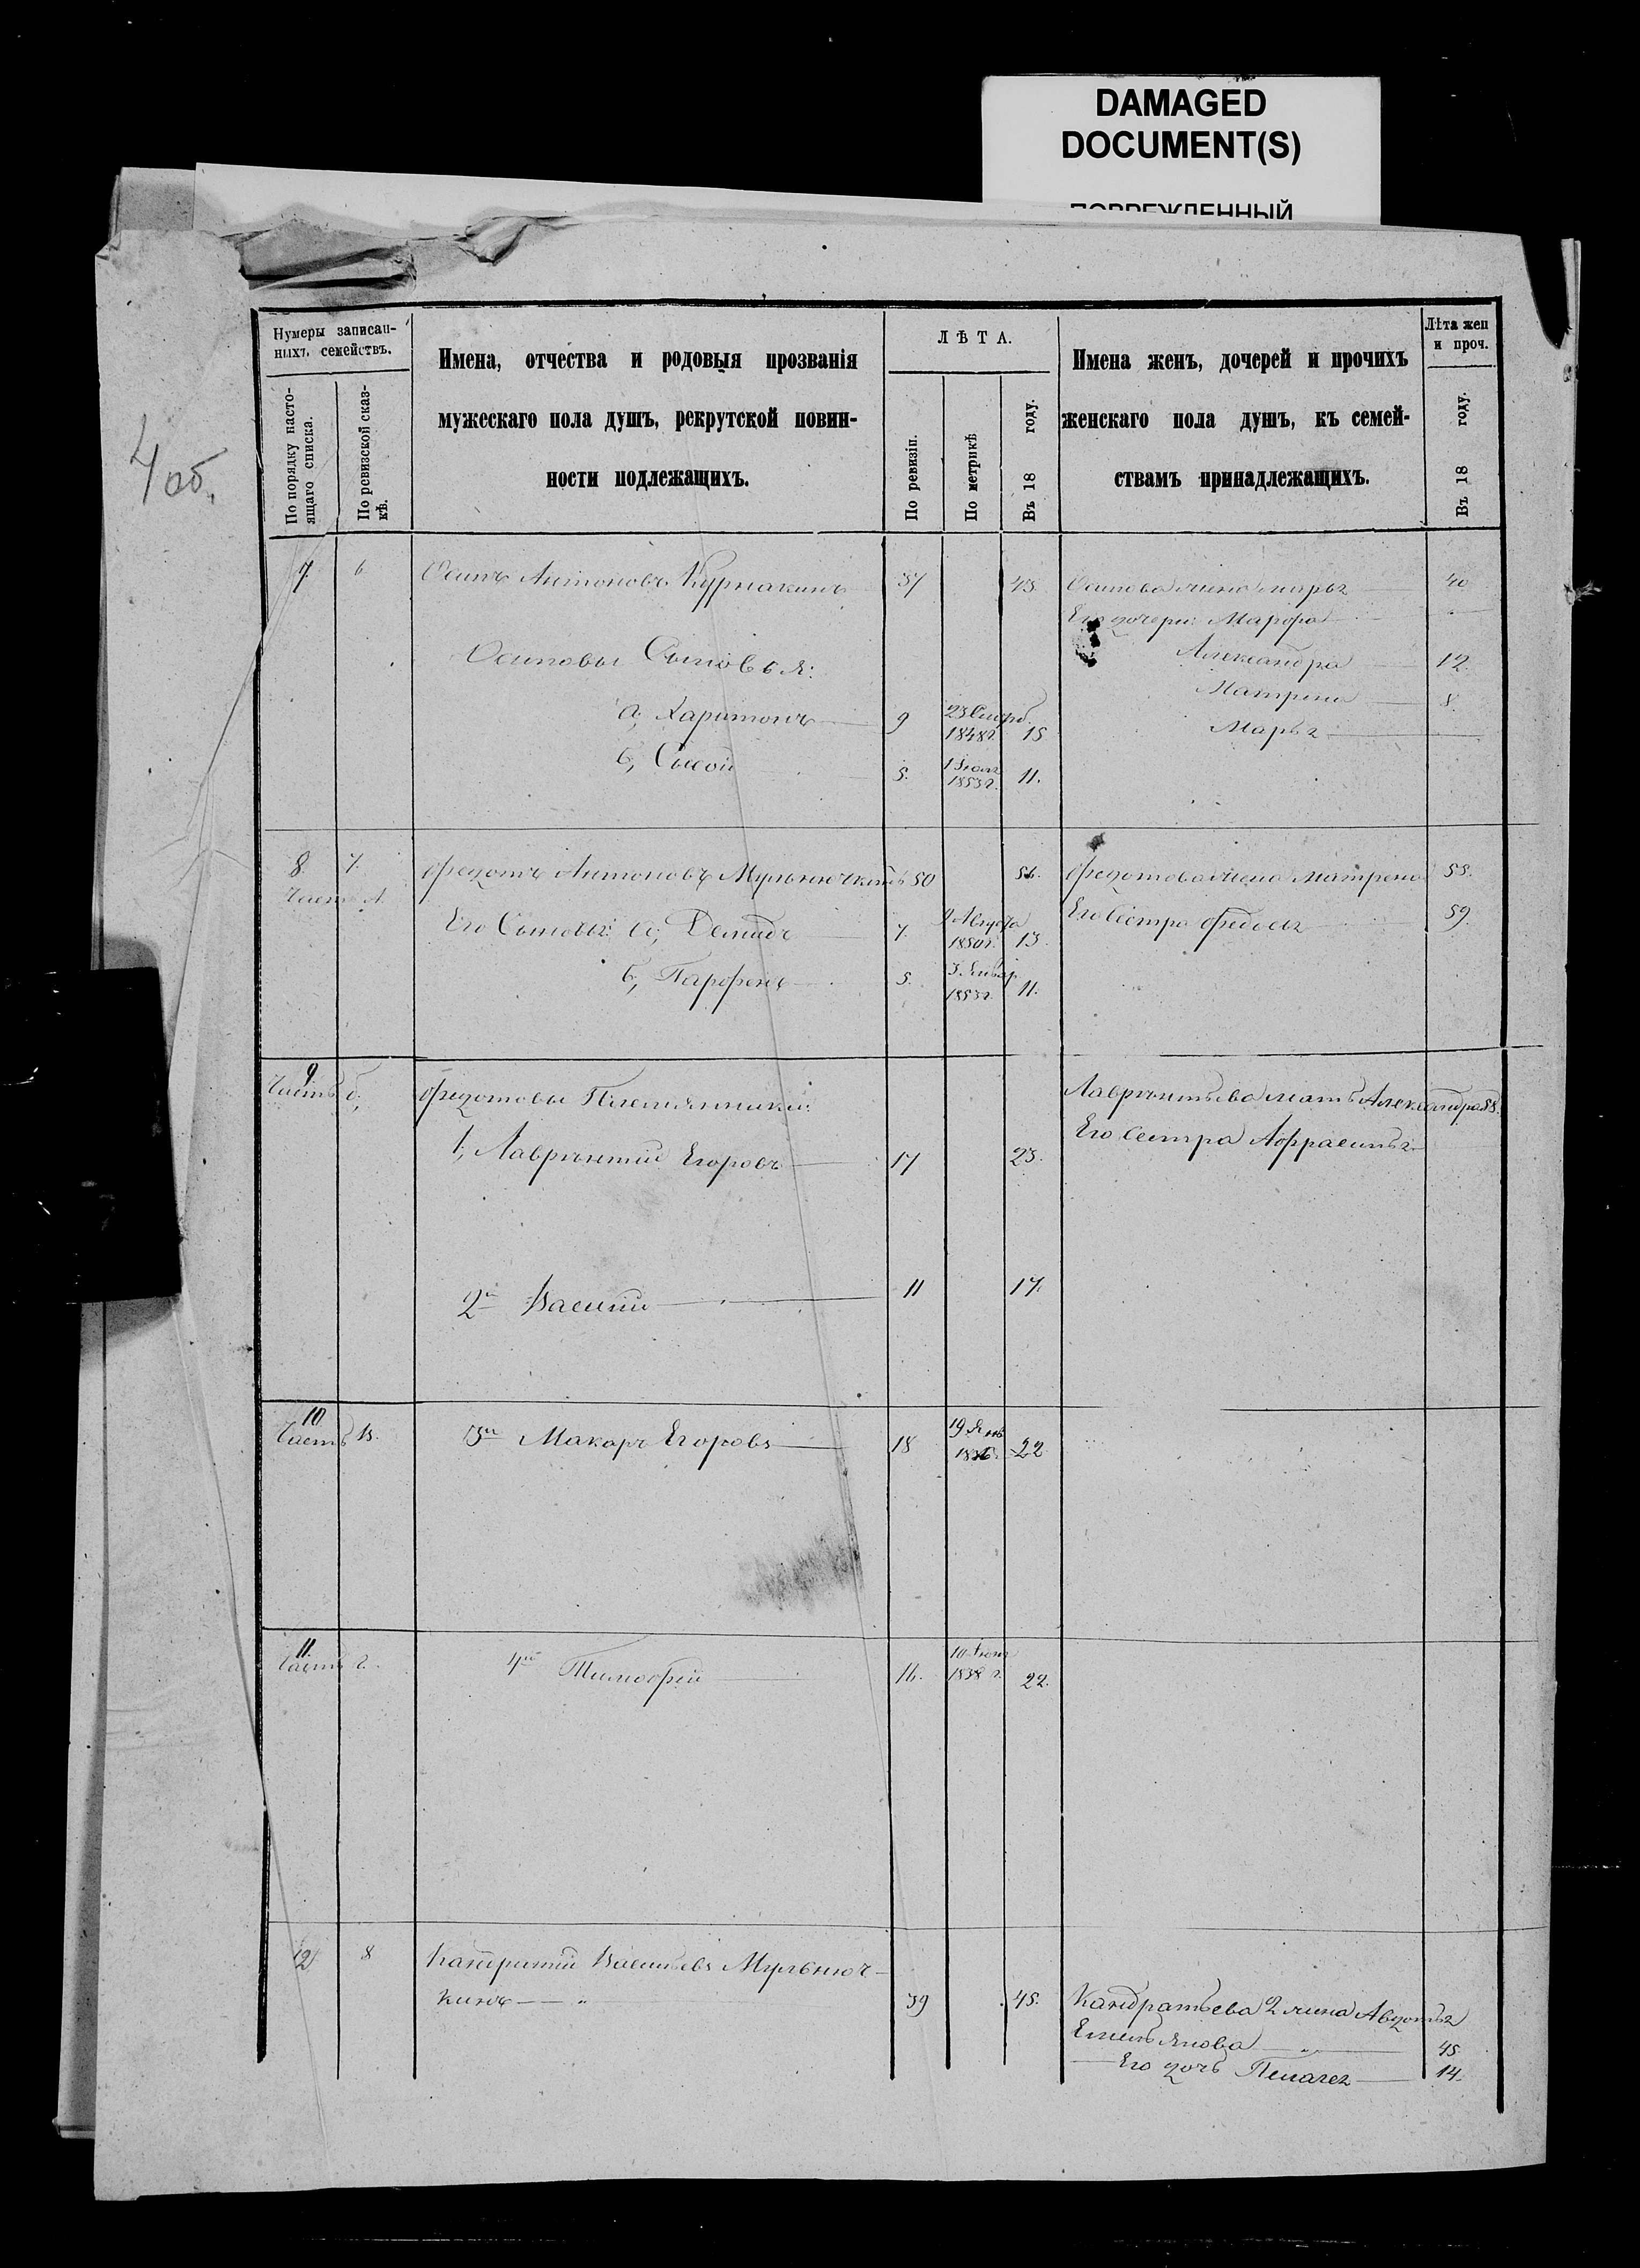 DAMAGED
DOCUMENT(S)
ПОВРЕЖДЕННЫЙ
4 об.
Нумеры записан-
ныхъ семействъ.
По порядку насто-
ящаго списка.
По ревизской сказ-
кѣ.
Имена, отчества и родовыя прозванія
мужескаго пола душъ, рекрутской повин-
ности подлежащихъ.
ЛѢТА.
По ревизіи.
По метрикѣ
Въ 18 году.
Имена женъ, дочерей и прочихъ
женскаго пола душъ, къ семей-
ствамъ принадлежащихъ.
Лѣта жен
и проч.
Въ 18 году.
7. 6 Осипъ Антоновъ 37 43. Осипова жена 40
Его дочери: Марфа
Осиповы Сыновья: Александра 12.
Матрена 8.
а, Харитонъ 9 23 1848г. 15 Марья
б, Сысой 5. 1 1853г. 11.
8. 7. Федотъ Антоновъ 50 56. Федотова жена Матрена 55.
Часть А
Его Сыновья: а, Демидъ 7. Августа 1850г. 13 Его Сестра Федосья 59.
б, Парфенъ 5. 3 Январ. 1853г. 11.
9 Лаврентьева мать Александра 58.
Часть б, Федотовы Племянники:
1, Лаврентій Егоровъ 17 23. Его Сестра Афрасинья
2й Василій 11 17.
10
Часть В. 3й Макаръ Егоровъ 18 19 Янв 22
11.
Часть г. 4й Тимофей 16. 10 1838 г. 22.
12 8 Кандратій Васильевъ Мульнюч-
кинъ 39 45. Кандратьева 2 жена Авдотья
Емельянова 45
Его дочь Пелагея 14.